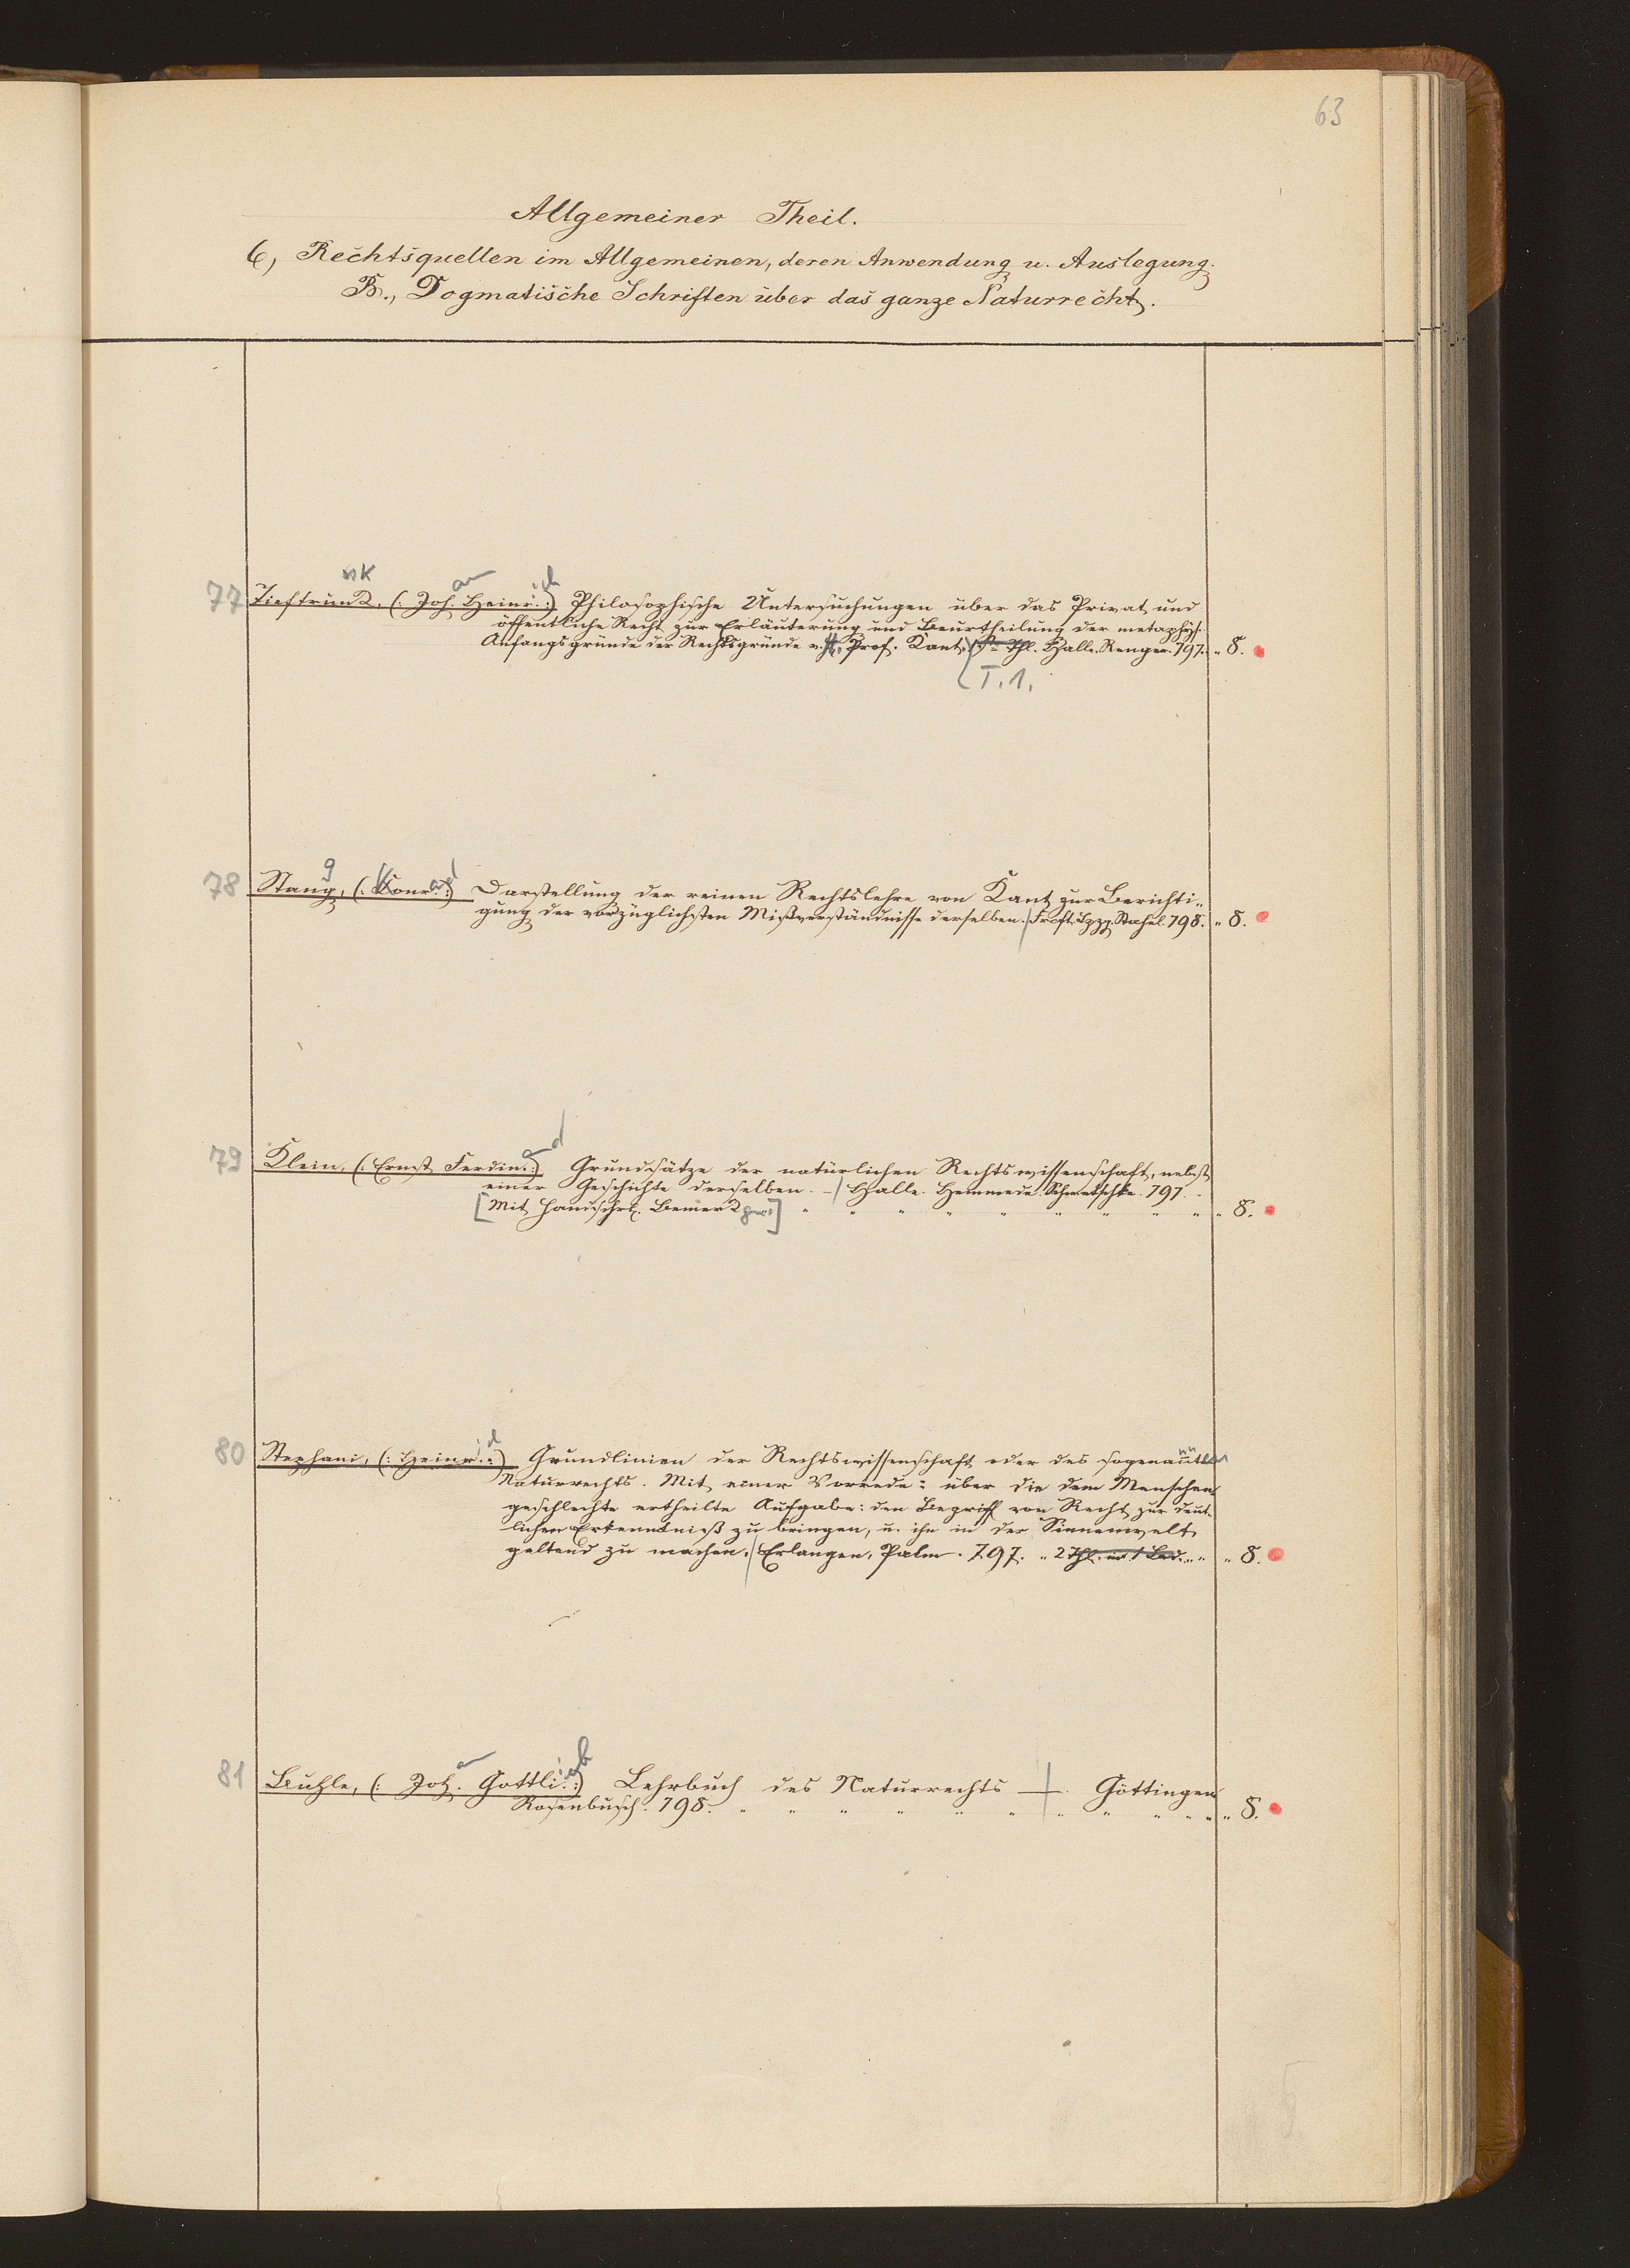 63
Allgemeiner Theil.
6, Rechtsquellen im Allgemeinen, deren Anwendung u. Auslegung.
B., Dogmatische Schriften über das ganze Naturrecht.
77 Tieftrunk, (: Joh. Heinr. :) Philosophische Untersuchungen über das Privat und
öffentliche Recht zur Erläuterung und Beurtheilung der metaphys.
Anfangsgründe der Rechtsgründe v. H. Prof. Kant. 1r Thl. Halle. Renger. 797. " 8.
T. 1.
78 Stang, (: Konrad :) Darstellung der reinen Rechtslehre von Kant zur Berichti-
gung der vorzüglichsten Mißverständnisse derselben. Frkft. Lpzg. Stahel. 798. " 8.
79 Klein, (: Ernst Ferdinand :) Grundsätze der natürlichen Rechtswissenschaft, nebst
einer Geschichte derselben. - Halle. Hemmerde. Schwetschke. 797.
[Mit handschr. Bemerkgen] " 8.
80 Stephani, (: Heinr. :) Grundlinien der Rechtswissenschaft oder des sogenannten
Naturrechts. Mit einer Vorrede: über die dem Menschen
geschlechte ertheilte Aufgabe: den Begriff von Recht zur deut-
lichen Erkenntniß zu bringen, u. ihn in der Sinnenwelt
geltend zu machen. Erlangen, Palm. 797. " 2 Thl. in 1 Bd. " " 8.
81 Buhle, (: Joh. Gottlieb :) Lehrbuch des Naturrechts — Göttingen
Rosenbusch. 798. " 8.